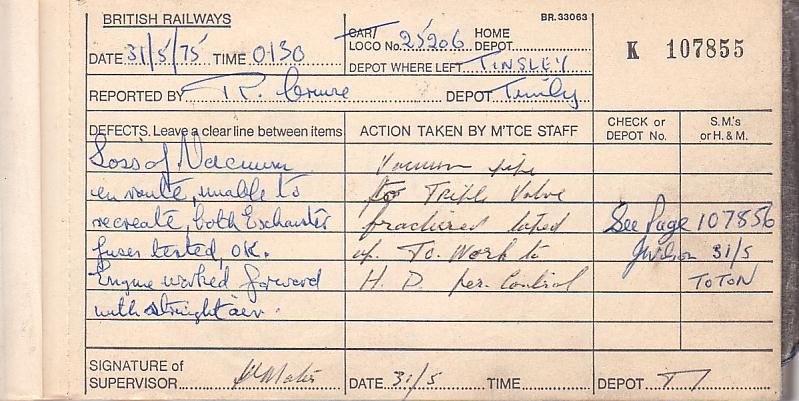 BRITISH RAILWAYS
BR.33063
DATE 31/5/75 TIME 0130
CAR/ LOCO No. 25206 HOME DEPOT
K 107855
DEPOT WHERE LEFT TINSLEY
REPORTED BY R. DEPOT Tinsley
DEFECTS. Leave a clear line between items
ACTION TAKEN BY M'TCE STAFF
CHECK or DEPOT No.
S.M.'s or H. & M.
Loss of Vacuum
en route, unable to
recreate, both Exhauster
fuses tested, OK.
Engine worked forward
with straight air.
Vacuum pipe
to Triple Valve
fractured taped
up. To. Work to
H. D. per. Control
See Page 107856
31/5
TOTON
SIGNATURE of SUPERVISOR
DATE 31/5 TIME
DEPOT TI